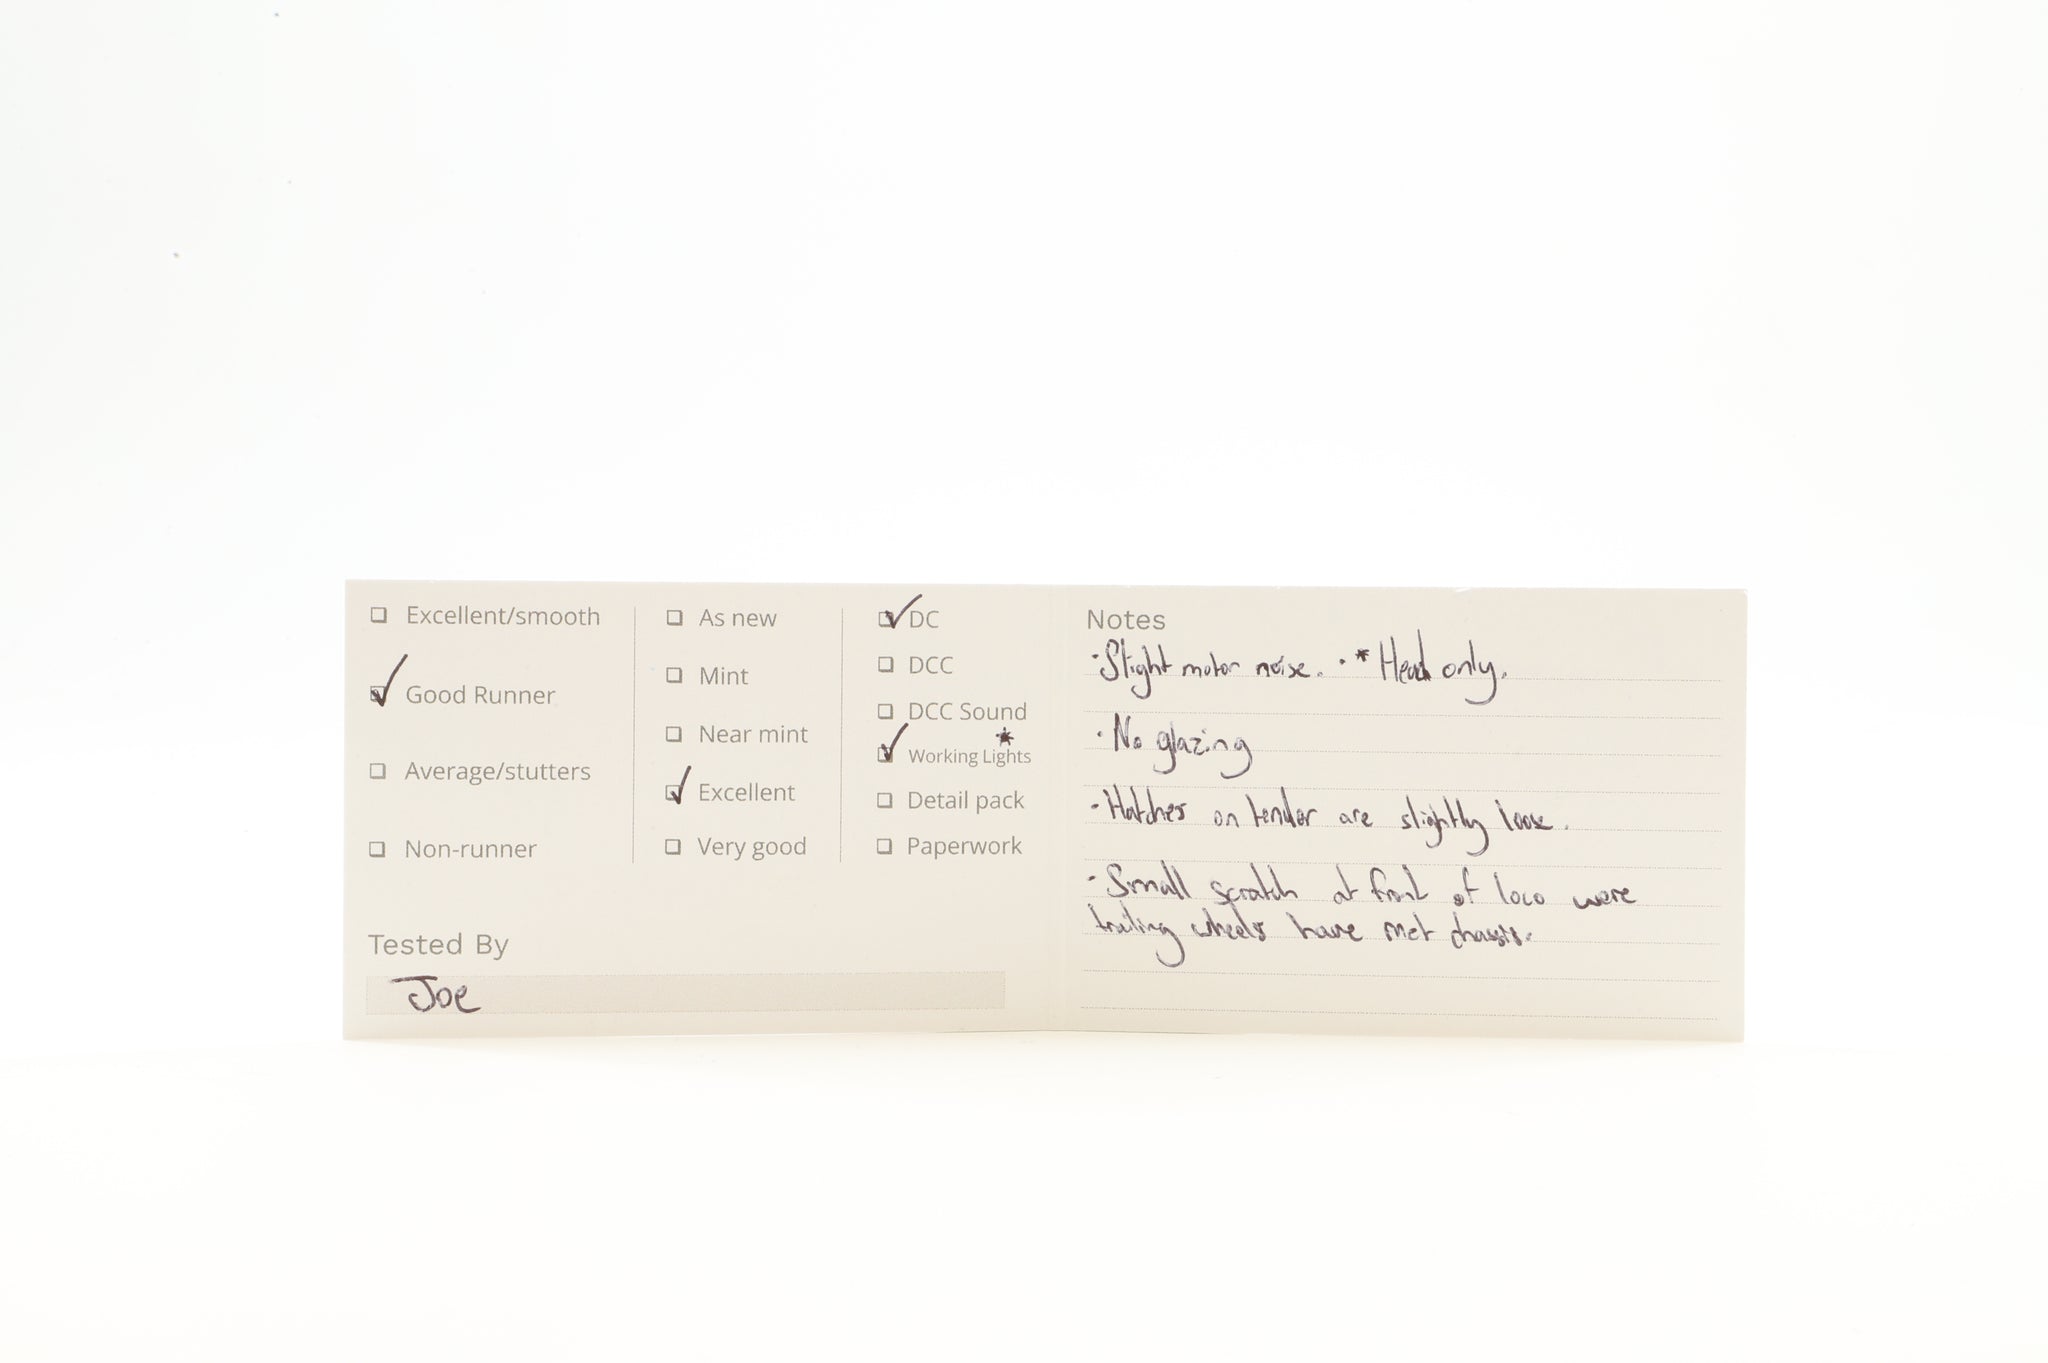 Excellent/smooth
Good Runner
Average/stutters
Non-runner
As new
Mint
Near mint
Excellent
Very good
DC
DCC
DCC Sound
*
Working Lights
Detail pack
Paperwork
Tested By
Joe
Notes
·Slight motor noise. · * Head only.
· No glazing
· Hatches on tender are slightly loose.
- Small scratch at front of loco were
trailing wheels have met chassis.